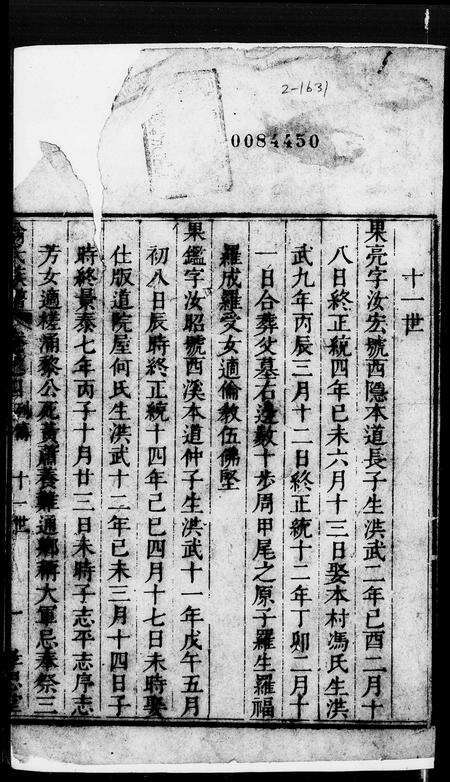 2-1631
0084450
十一世
果亮字汝宏號西隱本道長子生洪武二年己酉二月十
八日終正統四年己未六月十三日娶本村馮氏生洪
武九年丙辰三月十二日終正統十二年丁卯二月十
一日合葬父墓右邊數十步周甲尾之原子羅生羅福
羅成羅受女適倫敎伍佛堅
果鑑字汝昭號西溪本道仲子生洪武十一年戊午五月
初八日辰時終正統十四年己巳四月十七日未時娶
仕版道院屋何氏生洪武十二年己未三月十四日子
時終景泰七年丙子十月廿三日未時子志平志序志
芳女適槎涌黎公死黃蕭養難通鄉稱大軍忌奉祭三
十一世